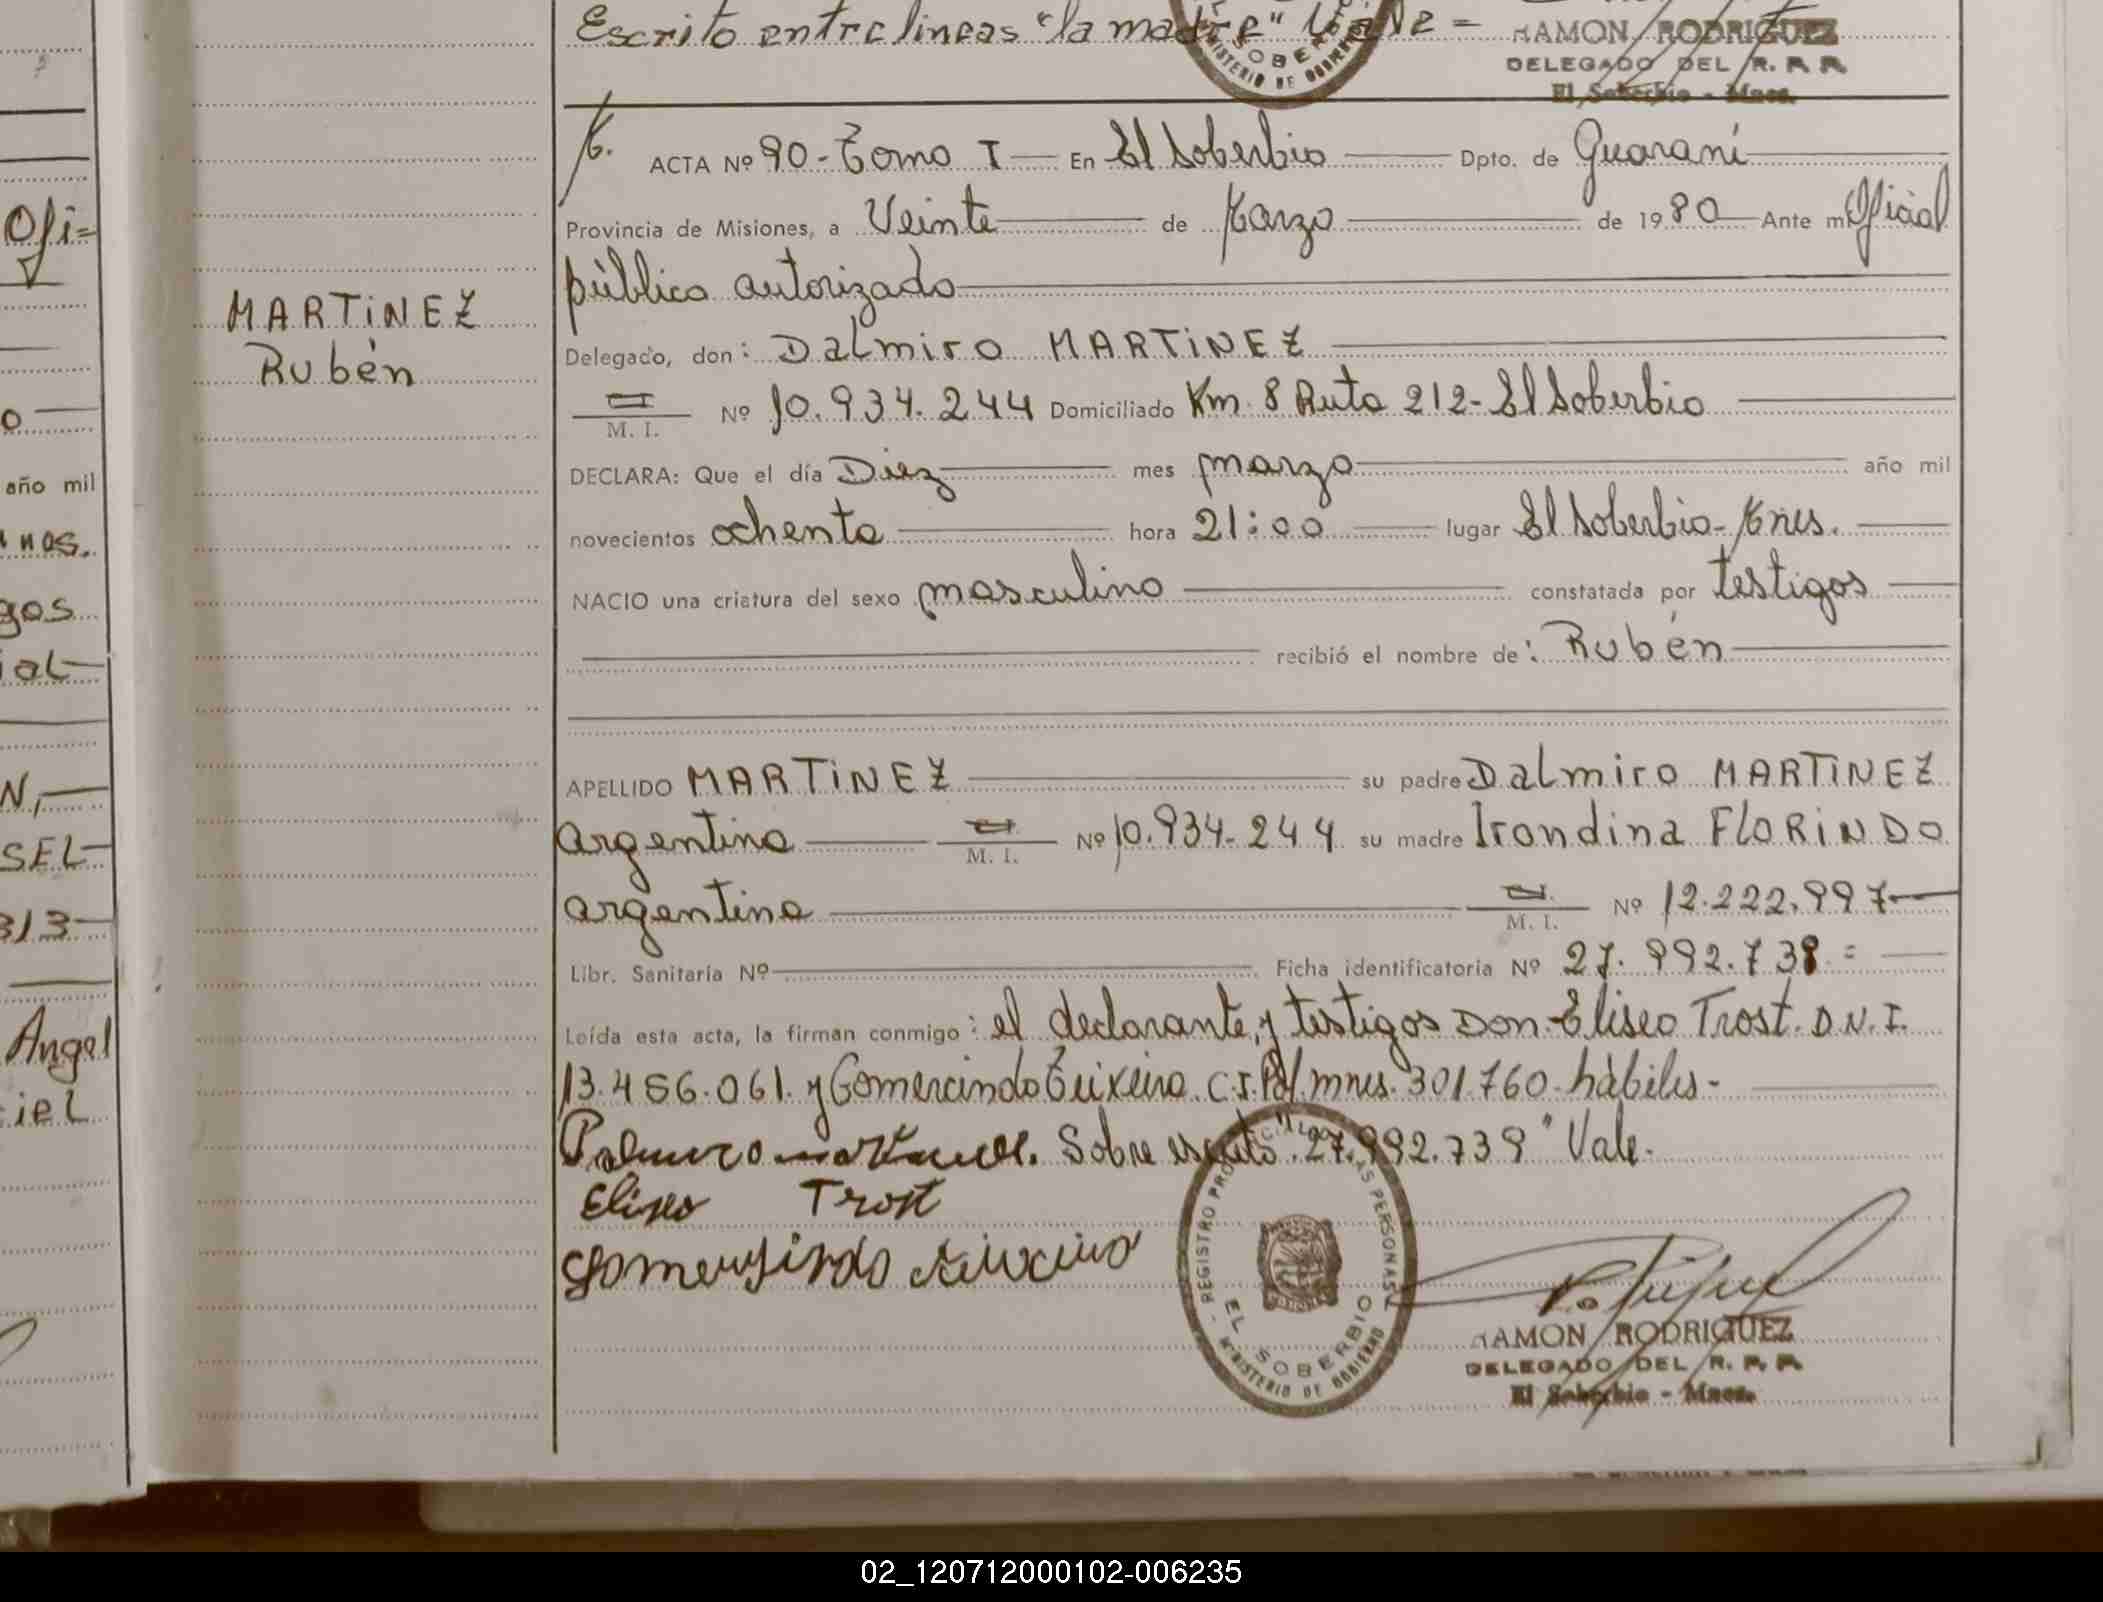 Escrito entrelineas "la madre" Vale =
RAMON RODRIGUEZ
DELEGADO DEL R. P. P.
El Soberbio - Mnes.
SOBERBIO
MINISTERIO DE GOBIERNO
ACTA Nº 90 - Tomo I En El Soberbio Dpto. de Guaraní
Provincia de Misiones, a Veinte de Marzo de 1980 Ante mí Oficial
público autorizado
MARTINEZ
Rubén
Delegado, don: Dalmiro MARTINEZ
M. I. Nº 10.934.244 Domiciliado Km. 8 Ruta 212 - El Soberbio
DECLARA: Que el día Diez mes marzo año mil
novecientos ochenta hora 21:00 lugar El Soberbio - Mnes.
NACIO una criatura del sexo masculino constatada por testigos
recibió el nombre de: Rubén
APELLIDO MARTINEZ su padre Dalmiro MARTINEZ
argentino M. I. Nº 10.934.244 su madre Irondina FLORINDO
argentina M. I. Nº 12.222.997
Libr. Sanitaria Nº Ficha identificatoria Nº 27.992.739 =
Leída esta acta, la firman conmigo: el declarante, y testigos Don. Eliseo Trost. D.N.I.
13.456.061. y Gomercindo Teixeira. C.I. Pol. mnes. 301.760. hábiles -
Dalmiro martinez. Sobre escrito "27.992.739" Vale.
Eliseo Trost
Gomersindo teixeira
REGISTRO PROVINCIAL DE LAS PERSONAS
EL SOBERBIO
MINISTERIO DE GOBIERNO
RAMON RODRIGUEZ
DELEGADO DEL R. P. P.
El Soberbio - Mnes.
Ofi=
año mil
gos
ial
N,
SEL
313
Angel
iel
02_120712000102-006235